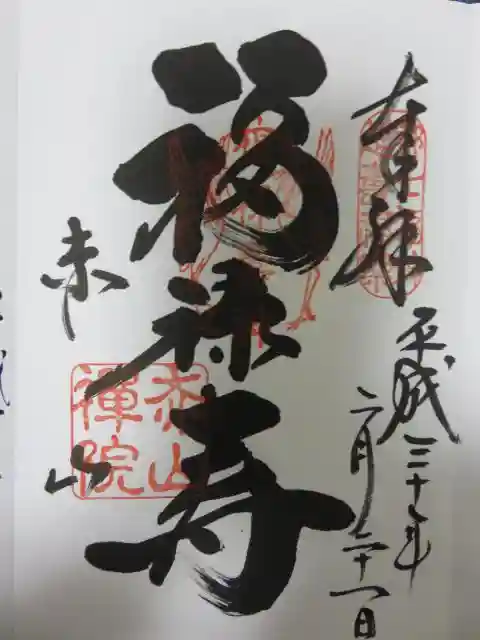 奉拝
平成三十年
二月二十一日
福禄寿
赤山
赤山
禪院